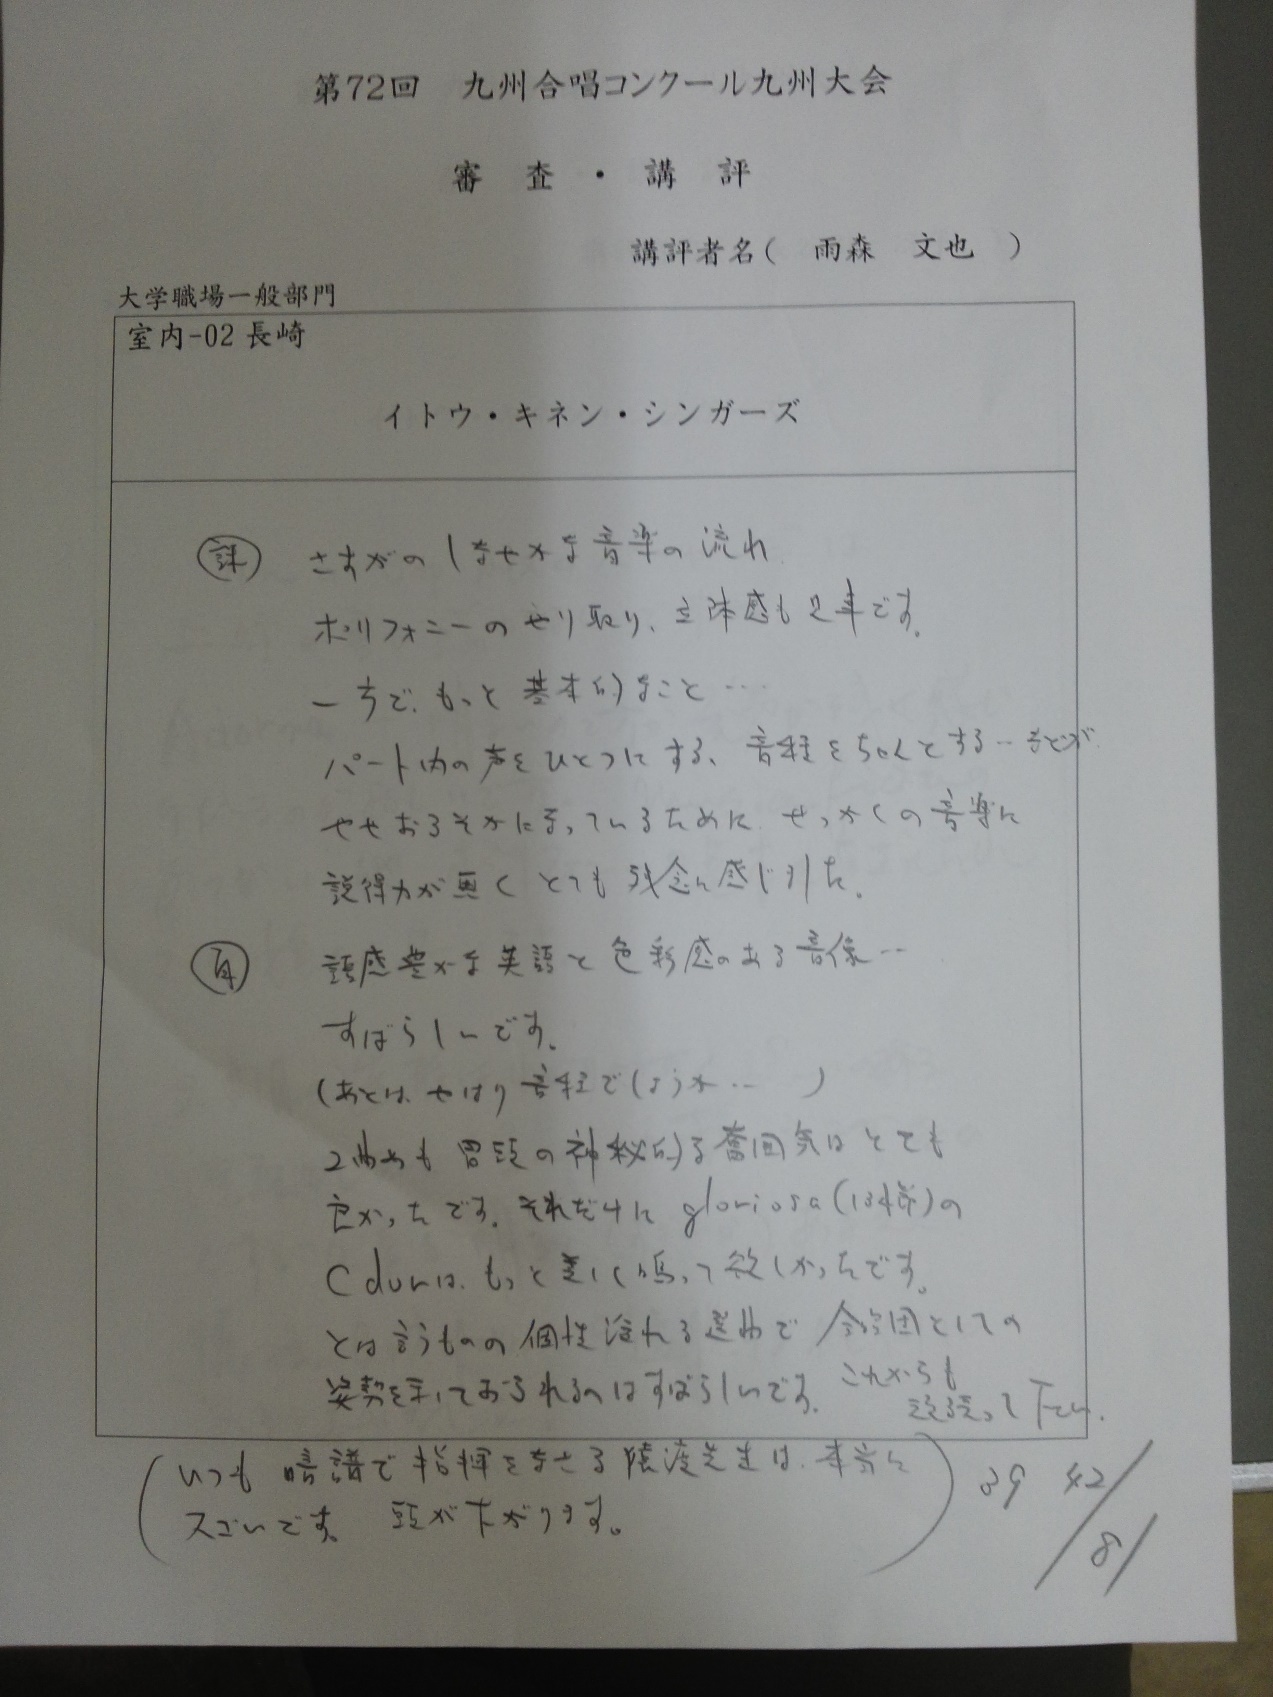 第72回 九州合唱コンクール九州大会
審 査 ・ 講 評
講評者名( 雨森 文也 )
大学職場一般部門
室内-02 長崎
イトウ・キネン・シンガーズ
課 さすがの しなやかな音楽の流れ
ポリフォニーのやり取り、立体感も見事です。
一方で、もっと基本的なこと…
パート内の声をひとつにする、音程をちゃんとする…などが
ややおろそかになっているために、せっかくの音楽に
説得力が無く とても残念に感じました。
自 語感豊かな英語と色彩感のある音像…
すばらしいです。
(あとは、やはり音程でしょうか… )
2曲めも 冒頭の神秘的な雰囲気はとても
良かったです。それだけに gloriosa(134節)の
C durは、もっと美しく鳴って欲しかったです。
とは言うものの 個性溢れる選曲で 合唱団としての
姿勢を示しておられるのはすばらしいです。これからも
頑張って下さい。
(いつも 暗譜で指揮をなさる 先生は、本当に
スゴいです。 頭が下がります。)
39 42
/81